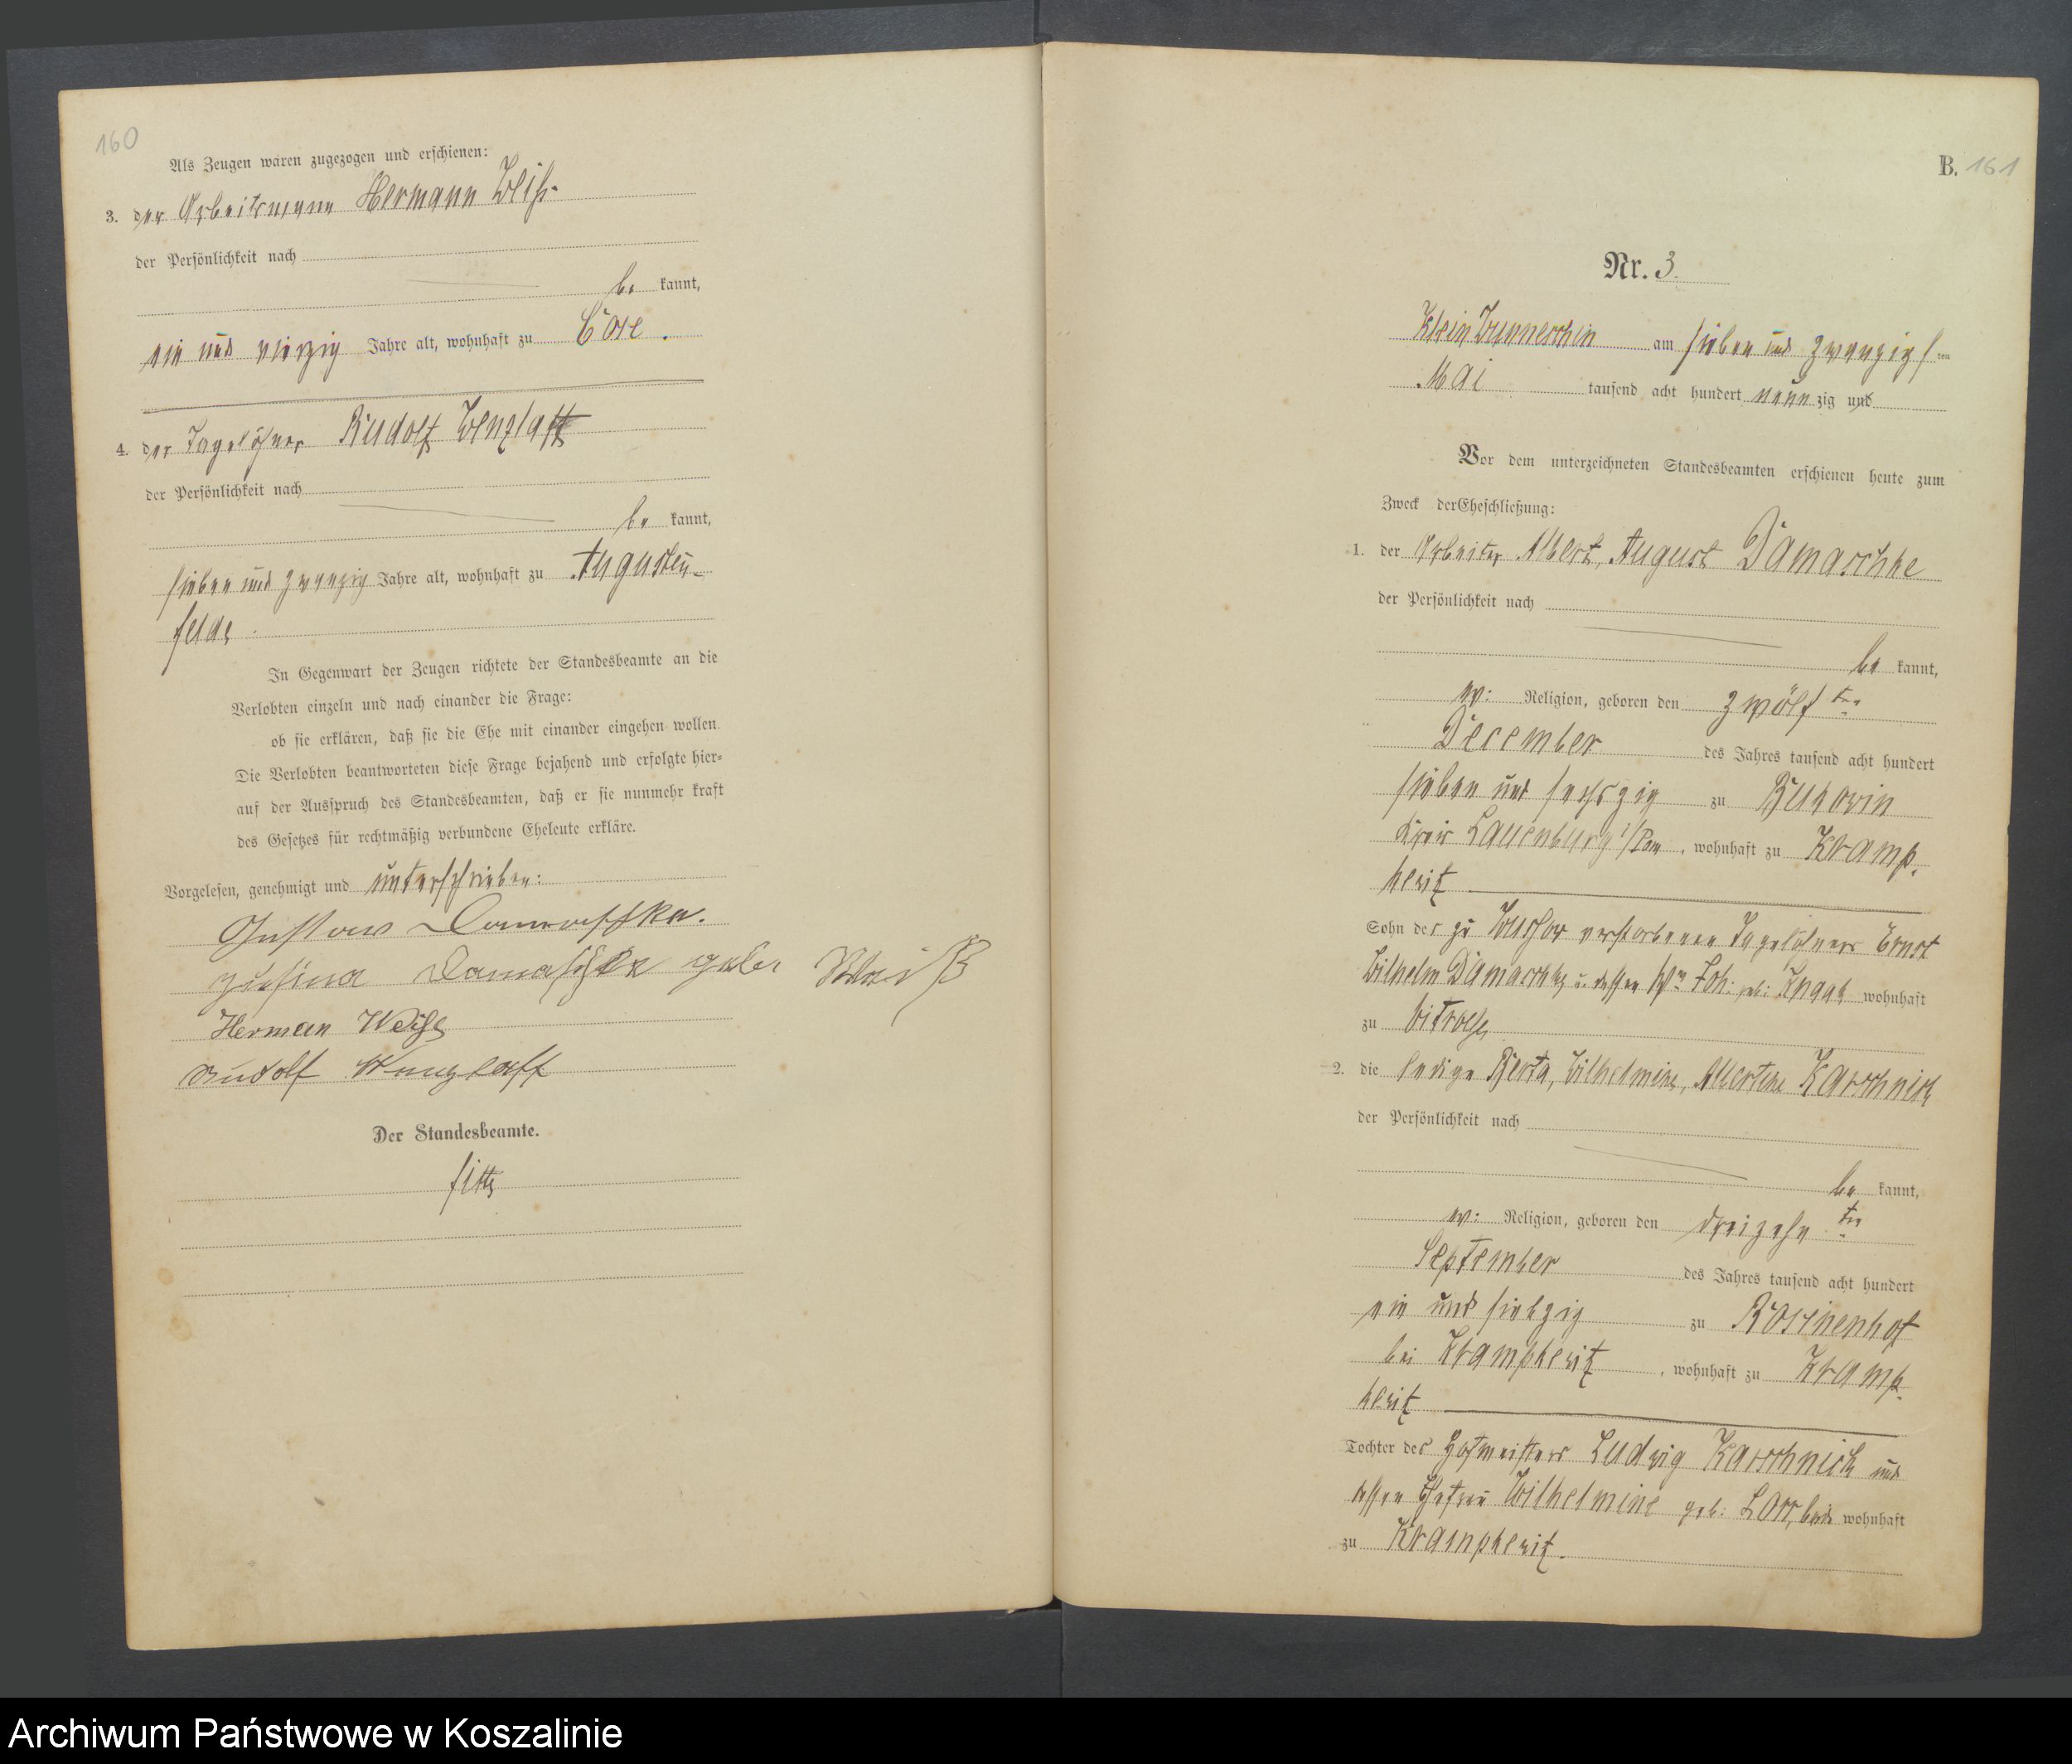 160
Als Zeugen waren zugezogen und erschienen:
3. der Arbeitsmann Hermann Weiß
der Persönlichkeit nach
be kannt,
ein und vierzig Jahre alt, wohnhaft zu Cose.
4. der Tagelöhner Rudolf Wenzlaff
der Persönlichkeit nach
be kannt,
sieben und zwanzig Jahre alt, wohnhaft zu Augusten-
felde
In Gegenwart der Zeugen richtete der Standesbeamte an die
Verlobten einzeln und nach einander die Frage:
ob sie erklären, daß sie die Ehe mit einander eingehen wollen.
Die Verlobten beantworteten diese Frage bejahend und erfolgte hier-
auf der Ausspruch des Standesbeamten, daß er sie nunmehr kraft
des Gesetzes für rechtmäßig verbundene Eheleute erkläre.
Vorgelesen, genehmigt und unterschrieben:
Gustaw Damaschke.
Damaschke geber Weiß
Herman Weiß
Rudolf Wenzlaff
Der Standesbeamte.
B. 161
Nr. 3.
Klein am sieben und zwanzigsten
Mai tausend acht hundert neunzig und
Vor dem unterzeichneten Standesbeamten erschienen heute zum
Zweck der Eheschließung:
1. der Arbeiter Albert, August Damaschke
der Persönlichkeit nach
be kannt,
ev: Religion, geboren den zwölf ten
December des Jahres tausend acht hundert
sieben und sechszig zu Bukowin
Kreis Lauenburg i/Pom, wohnhaft zu Kramp-
kewitz
Sohn des zu verstorbenen Tagelöhners Ernst
Wilhelm Damaschke u. dessen Joh: geb: Knaak wohnhaft
zu
2. die ledige Berta, Wilhelmine, Albertine Karschnick
der Persönlichkeit nach
be kannt,
ev: Religion, geboren den dreizehn ten
September des Jahres tausend acht hundert
ein und siebzig zu Rosinenhof
bei Krampkewitz, wohnhaft zu Kramp-
kewitz
Tochter des Hofmeisters Ludwig Karschnick und
dessen Ehefrau Wilhelmine geb: beide wohnhaft
zu Krampkewitz.
Archiwum Państwowe w Koszalinie